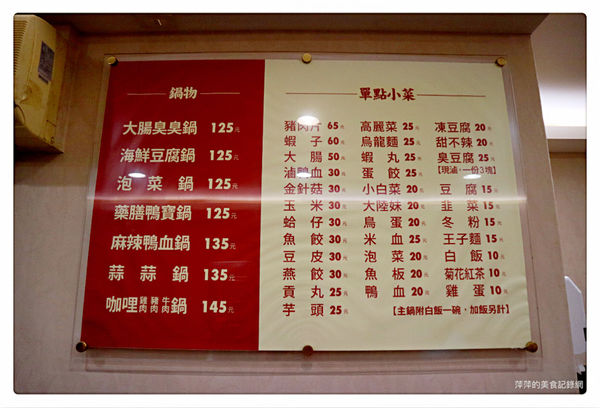 鍋物
大腸臭臭鍋 125元
海鮮豆腐鍋 125元
泡菜鍋 125元
藥膳鴨寶鍋 125元
麻辣鴨血鍋 135元
蒜蒜鍋 135元
咖哩雞肉豬肉牛肉鍋 145元
單點小菜
豬肉片 65元
蝦子 60元
大腸 50元
滷鴨血 30元
金針菇 30元
玉米 30元
蛤仔 30元
魚餃 30元
豆皮 30元
燕餃 30元
貢丸 25元
芋頭 25元
高麗菜 25元
烏龍麵 25元
蝦丸 25元
蛋餃 25元
小白菜 20元
大陸妹 20元
鳥蛋 20元
米血 25元
泡菜 20元
魚板 20元
鴨血 20元
凍豆腐 20元
甜不辣 20元
臭豆腐 25元
【現滷,一份3塊】
豆腐 15元
韭菜 15元
冬粉 15元
王子麵 15元
白飯 10元
菊花紅茶 10元
雞蛋 10元
【主鍋附白飯一碗,加飯另計】
萍萍的美食記錄網